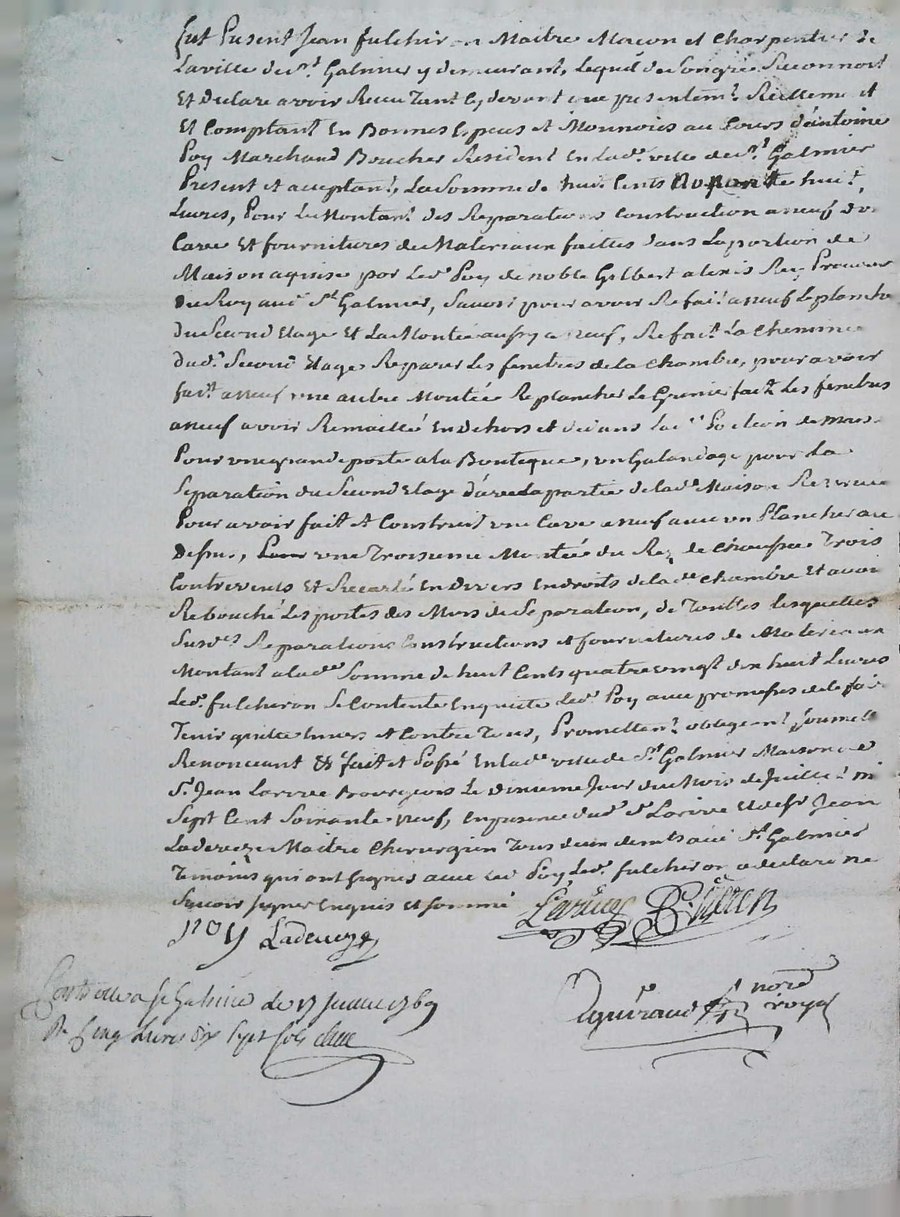 fut Présent Jean fulcheron Maitre Macon et Charpentier de
Laville de St Galmier y demeurant, Lequel de Son gré a Reconnoit
Et Declare avoir Receu tant cy devant que presentemt Reellemt et
Et Comptant En Bonnes Especes et Monnoies au Cours d'antoine
Poy Marchand Boucher Resident En lade ville de St Galmier
Present et acceptant, La Somme de huit Cents Nonante huit
Livres, Pour Le Montant des Reparations Construction a neuf de
Cave Et fournitures de Materiaux faittes dans La portion de
Maison aquise par Led Poy de noble Gilbert alexis Rey Procureur
du Roy aud St Galmier, Savoir pour avoir Refait a neuf Le planché
du Second Etage Et La Montée aussy a neuf, Refait La Cheminée
dud Second Etage Reparer Les fenetres de la Chambre, pour avoir
fait a neuf une autre Montée Replancher Le Grenier fait Les fenetres
a neuf avoir Remaillé En dehors et dedans lade Portion de murs
Pour une grande porte a la Boutique, un Galandage pour La
Separation du Second Etage d'avec la partie de lade Maison Reservée
Pour avoir fait et Construit une Cave a neuf avec un Plancher au
dessus, une Troisieme Montée du Rez de Chaussée Trois
Contrevents Et Recarlé En Divers Endroits de lade chambre Et avoir
Rebouché Les portes des Murs de Separation, de Touttes lesquelles
Susdes Reparations Constructions et fournitures de Materiaux
Montant a lade Somme de huit Cents quatre vingt dix huit Livres
Led. fulcheron Se Contente En quitte Led Poy avec promesses de le faire
Tenir quitte Envers et Contre Tous, Promettant obligeant Soumett
Renonceant &c fait et Passé En lade ville de St Galmier Maison de
Sr Jean Larive Bourgeois Le dixieme Jour du Mois de Juillet mil
Sept Cent Soixante Neuf, En presence dud Sr Larive Et de Sr Jean
Ladeveze Maitre Chirurgien Tous deux demts aud St Galmier
Temoins qui ont Signés avec Led Poy, Led. fulcheron a declaré ne
Savoir Signer Enquis et Sommé
Larive
Poy Ladeveze
Controllé a St Galmier le 17 Juillet 1769
Rt Cinq Livres dix Sept Sols
nore
royal